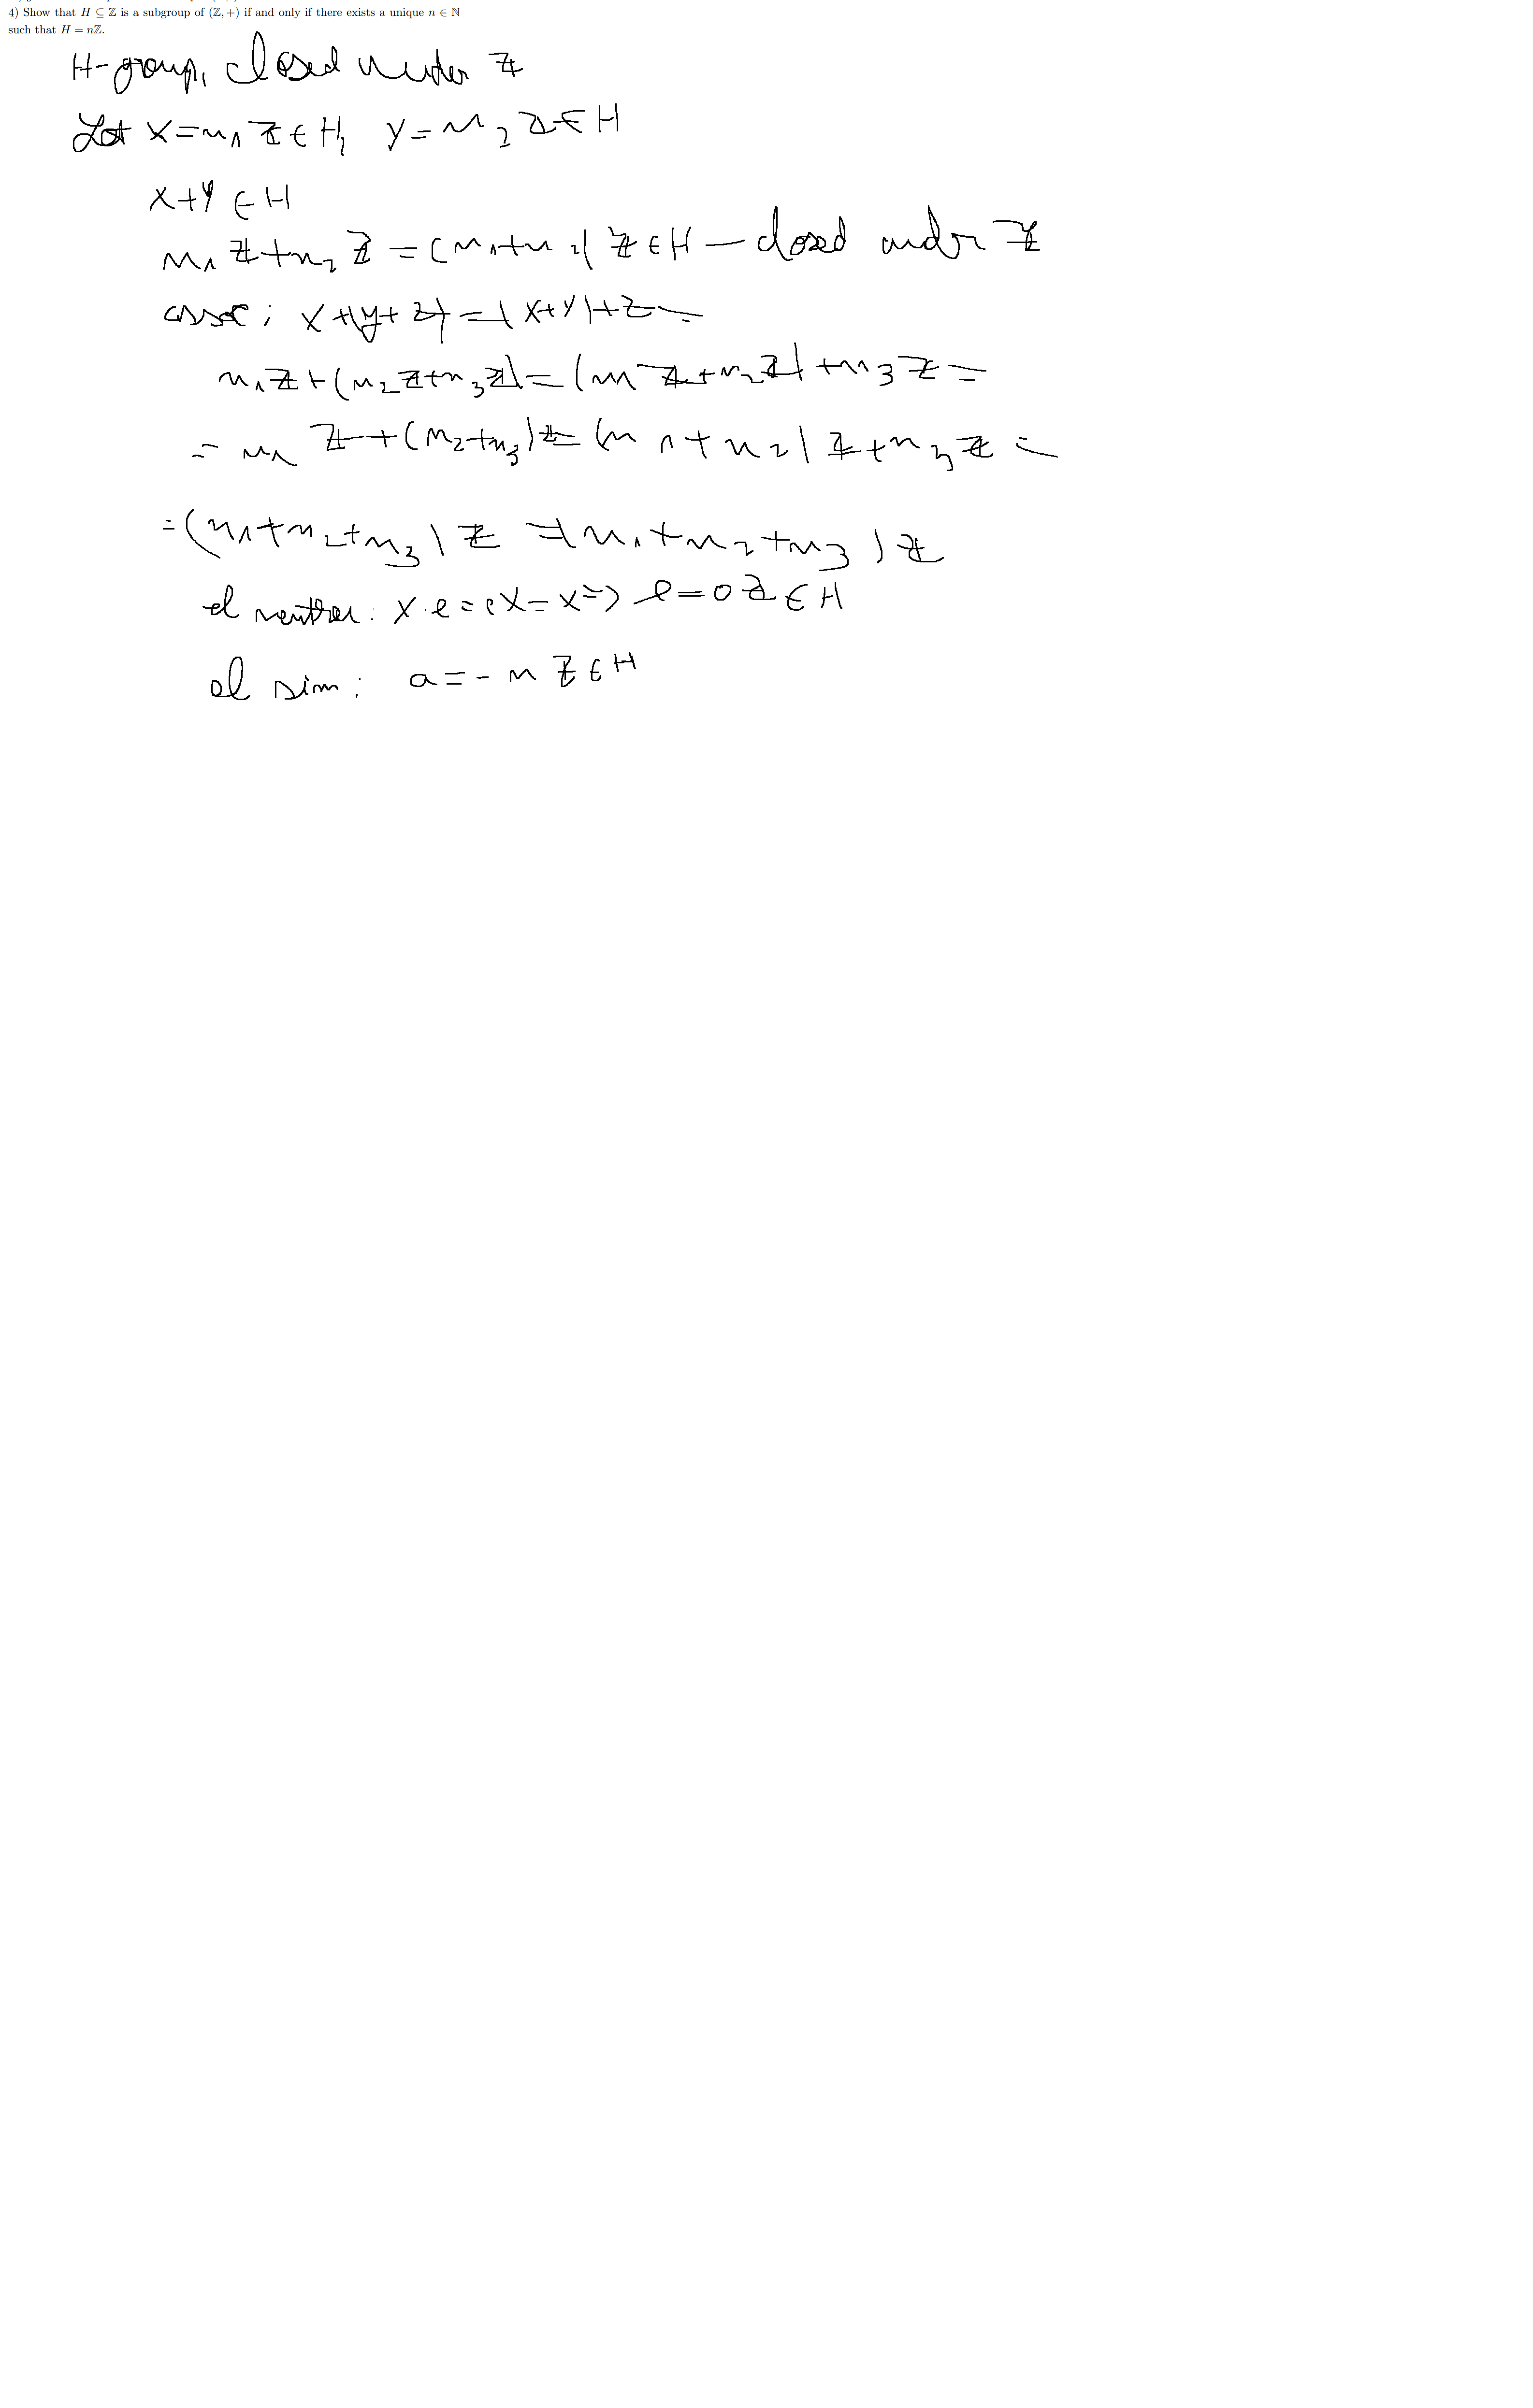 4) Show that H ⊆ ℤ is a subgroup of (ℤ, +) if and only if there exists a unique n ∈ ℕ
such that H = nℤ.
H-group, closed under ℤ
Let x = n₁ ℤ ∈ H, y = n₂ ℤ ∈ H
x+y ∈ H
n₁ ℤ + n₂ ℤ = (n₁+n₂) ℤ ∈ H — closed under ℤ
assoc: x+(y+z) = (x+y)+z =
n₁ℤ + (n₂ℤ+n₃ℤ) = (n ℤ+n₂ℤ) + n₃ℤ =
= n₁ ℤ+(n₂+n₃)ℤ = (n₁+n₂) ℤ+n₃ℤ =
= (n₁+n₂+n₃) ℤ = (n₁+n₂+n₃) ℤ
el neutru: x·e = ex = x => e = 0ℤ ∈ H
el sim: a = -n ℤ ∈ H